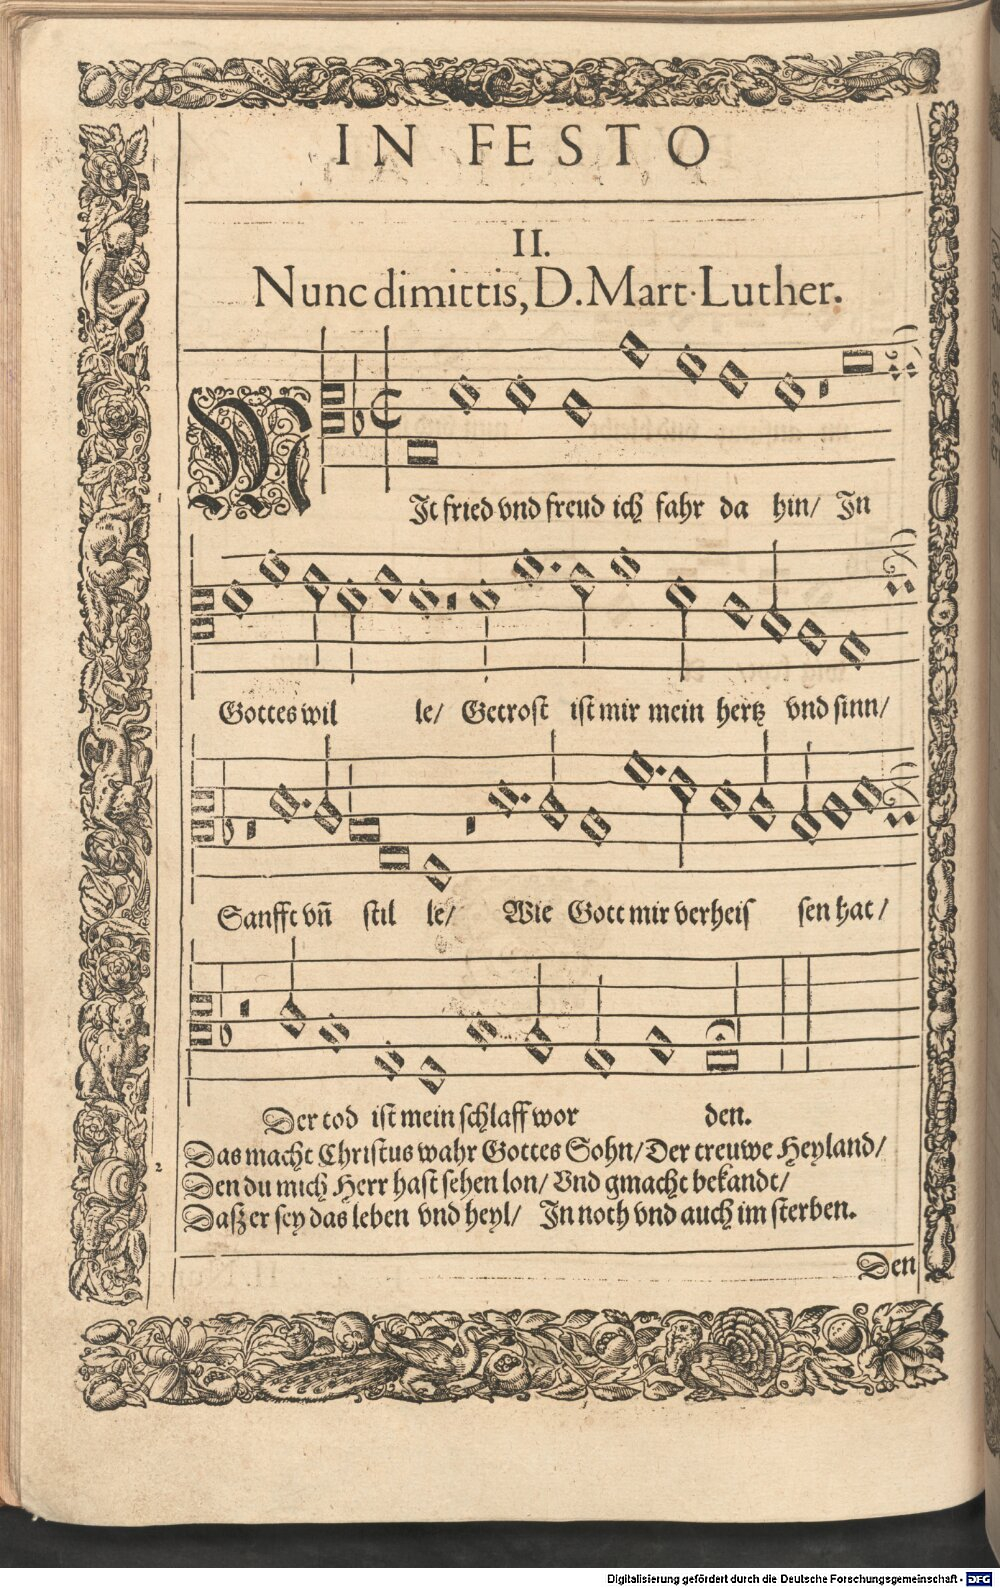 IN FESTO
II.
Nunc dimittis, D. Mart. Luther.
MIt fried vnd freud ich fahr da hin/ In
Gottes wil le/ Getrost ist mir mein hertz vnd sinn/
Sanfft vñ stil le/ Wie Gott mir verheis sen hat/
Der tod ist mein schlaff wor den.
2 Das macht Christus wahr Gottes Sohn/ Der treuwe Heyland/
Den du mich Herr hast sehen lon/ Vnd gmacht bekandt/
Dasz er sey das leben vnd heyl/ In noth vnd auch im sterben.
Den
Digitalisierung gefördert durch die Deutsche Forschungsgemeinschaft - DFG